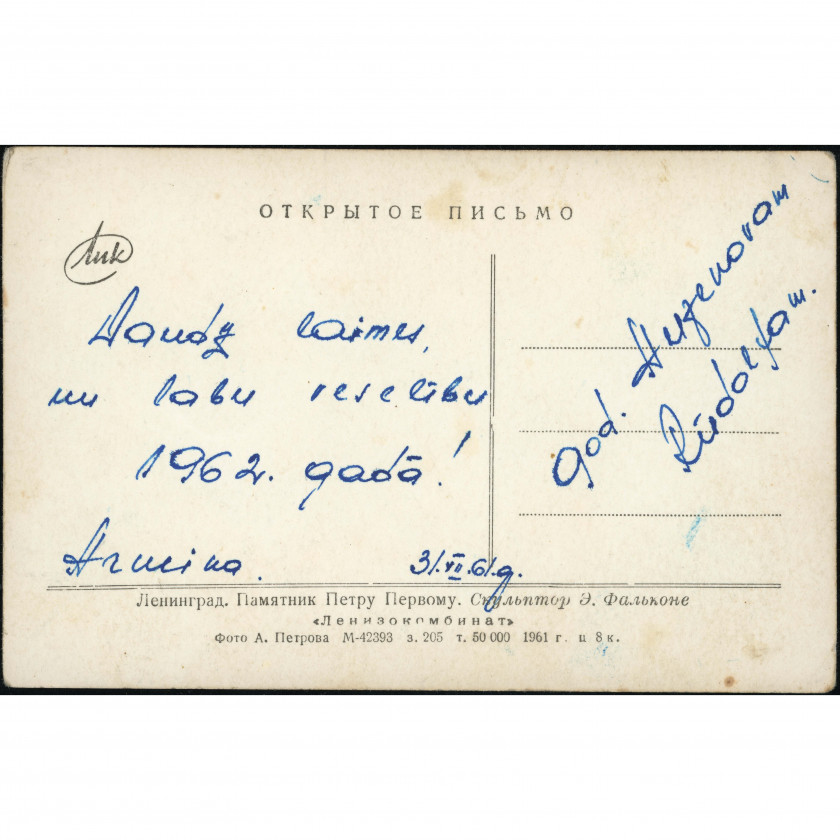 ОТКРЫТОЕ ПИСЬМО
Лик
Daudz laimes,
un labu veselību
1962. gadā!
Armina.
31.XII.61.g.
god. Herzenovam
Rūdolfam.
Ленинград. Памятник Петру Первому. Скульптор Э. Фальконе
«Ленизокомбинат»
Фото А. Петрова М-42393 з. 205 т. 50 000 1961 г. ц 8 к.